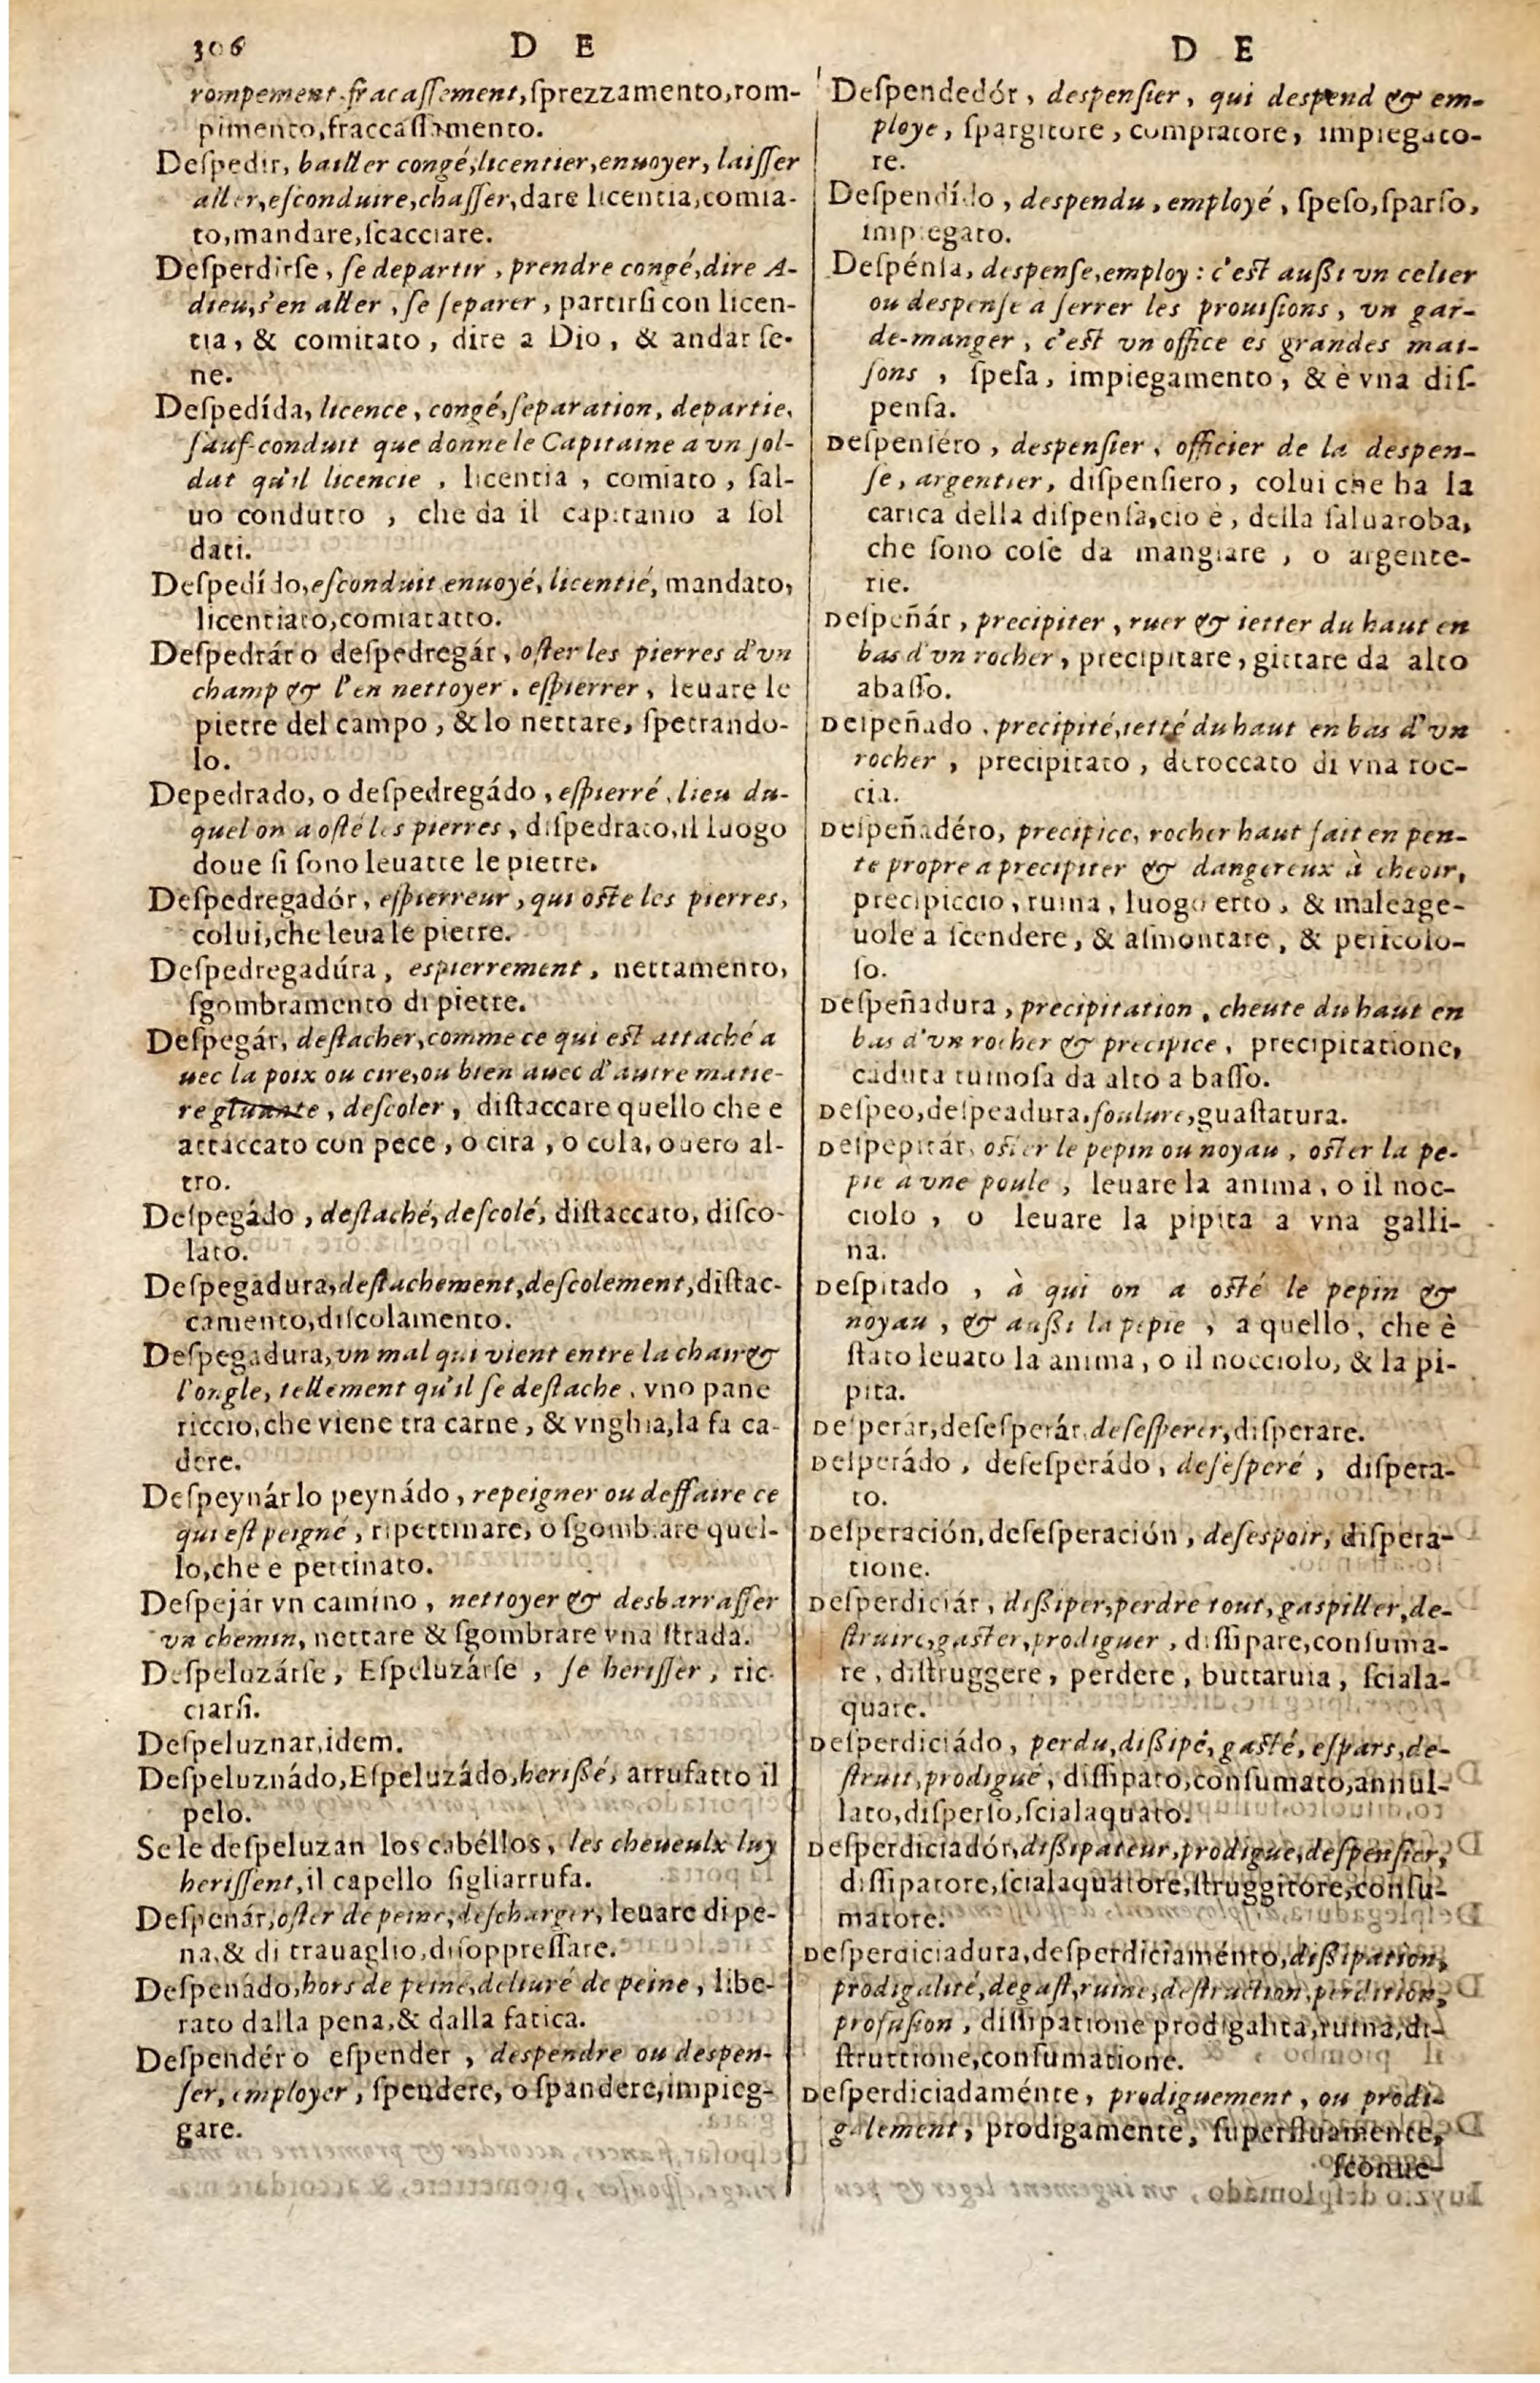 306 D E
rompement, fracaſſement, ſprezzamento, rom-
pimento, fraccaſſamento.
Deſpedir, bailler congé, licentier, enuoyer, laiſſer
aller, eſconduire, chaſſer, dare licentia, comia-
to, mandare, ſcacciare.
Deſperdirſe, ſe departir, prendre congé, dire A-
dieu, s'en aller, ſe ſeparer, partirſi con licen-
tia, & comitato, dire a Dio, & andar ſe-
ne.
Deſpedída, licence, congé, ſeparation, departie,
ſauf-conduit que donne le Capitaine a vn ſol-
dat qu'il licencie, licentia, comiato, ſal-
uo condutto, che da il capitanio a ſol
dati.
Deſpedído, eſconduit enuoyé, licentié, mandato,
licentiato, comiatatto.
Deſpedrár o deſpedregár, oſter les pierres d'vn
champ & l'en nettoyer, eſpierrer, leuare le
pietre del campo, & lo nettare, ſpetrando-
lo.
Depedrado, o deſpedregádo, eſpierré, lieu du-
quel on a oſté les pierres, diſpedrato, il luogo
doue ſi ſono leuatte le pietre.
Deſpedregadór, eſpierreur, qui oſte les pierres,
colui, che leua le pietre.
Deſpedregadúra, espierrement, nettamento,
ſgombramento di pietre.
Deſpegár, deſtacher, comme ce qui eſt attaché a
uec la poix ou cire, ou bien auec d'autre matie-
re gluante, deſcoler, diſtaccare quello che e
attaccato con pece, o cira, o cola, ouero al-
tro.
Deſpegádo, deſtaché, deſcolé, diſtaccato, diſco-
lato.
Deſpegadura, deſtachement, deſcolement, diſtac-
camento, diſcolamento.
Deſpegadura, vn mal qui vient entre la chair &
l'ongle, tellement qu'il ſe deſtache, vno pane
riccio, che viene tra carne, & vnghia, la fa ca-
dere.
Deſpeynár lo peynádo, repeigner ou deffaire ce
qui eſt peigné, ripettinare, o ſgombrare quel-
lo, che e pettinato.
Deſpejár vn camino, nettoyer & desbarraſſer
vn chemin, nettare & ſgombrare vna ſtrada.
Deſpeluzárſe, Eſpeluzárſe, ſe heriſſer, ric-
ciarſi.
Deſpeluznar, idem.
Deſpeluznádo, Eſpeluzádo, heriſſé, arrufatto il
pelo.
Se le deſpeluzan los cabéllos, les cheueulx luy
heriſſent, il capello ſigliarrufa.
Deſpenár, oſter de peine, deſcharger, leuare di pe-
na, & di trauaglio, diſoppreſſare.
Deſpenado, hors de peine, deliuré de peine, libe-
rato dalla pena, & dalla fatica.
Deſpendér o eſpender, despendre ou despen-
ſer, employer, ſpendere, o ſpandere, impieg-
gare.
D E
Deſpendedór, despenſier, qui despend & em-
ploye, ſpargitore, compratore, impiegato-
re.
Deſpendído, despendu, employé, ſpeſo, ſparſo,
impiegato.
Deſpénſa, despenſe, employ : c'eſt auſſi vn celier
ou despenſe a ſerrer les prouiſions, vn gar-
de-manger, c'eſt vn office es grandes mai-
ſons, ſpeſa, impiegamento, & è vna diſ-
penſa.
Deſpenſéro, despenſier, officier de la despen-
ſe, argentier, diſpenſiero, colui che ha la
carica della diſpenſa, cio è, della ſaluaroba,
che ſono coſe da mangiare, o argente-
rie.
Deſpeñár, precipiter, ruer & ietter du haut en
bas d'vn rocher, precipitare, gittare da alto
abaſſo.
Deſpeñado, precipité, ietté du haut en bas d'vn
rocher, precipitato, deroccato di vna roc-
cia.
Deſpeñadéro, precipice, rocher haut fait en pen-
te propre a precipiter & dangereux à cheoir,
precipiccio, ruina, luogo erto, & maleage-
uole a ſcendere, & aſmontare, & pericolo-
ſo.
Deſpeñadura, precipitation, cheute du haut en
bas d'vn rocher & precipice, precipitatione,
caduta ruinoſa da alto a baſſo.
Deſpeo, deſpeadura, foulure, guaſtatura.
Deſpepitár, oſter le pepin ou noyau, oſter la pe-
pie a vne poule, leuare la anima, o il noc-
ciolo, o leuare la pipita a vna galli-
na.
Deſpitado, à qui on a oſté le pepin &
noyau, & auſſi la pepie, a quello, che è
ſtato leuato la anima, o il nocciolo, & la pi-
pita.
Deſperár, deſeſperár, deſeſperer, diſperare.
Deſperádo, deſeſperádo, deſeſperé, diſpera-
to.
Deſperación, deſeſperación, deſespoir, diſpera-
tione.
Deſperdiciár, diſſiper, perdre tout, gaſpiller, de-
ſtruire, gaſter, prodiguer, diſſipare, conſuma-
re, diſtruggere, perdere, buttaruia, ſciala-
quare.
Deſperdiciádo, perdu, diſſipé, gaſté, eſpars, de-
ſtruit, prodigué, diſſipato, conſumato, annul-
lato, diſperſo, ſcialaquato.
Deſperdiciadór, diſſipateur, prodigue, deſpenſier,
diſſipatore, ſcialaquatore, ſtruggitore, conſu-
matore.
Deſperdiciadura, deſperdiciaménto, diſſipation,
prodigalité, degaſt, ruine, deſtruction, perdition,
profuſion, diſſipatione prodigalita, ruina, di-
ſtruttione, conſumatione.
Deſperdiciadaménte, prodiguement, ou prodi-
galement, prodigamente, ſuperfluamente,
ſconue-